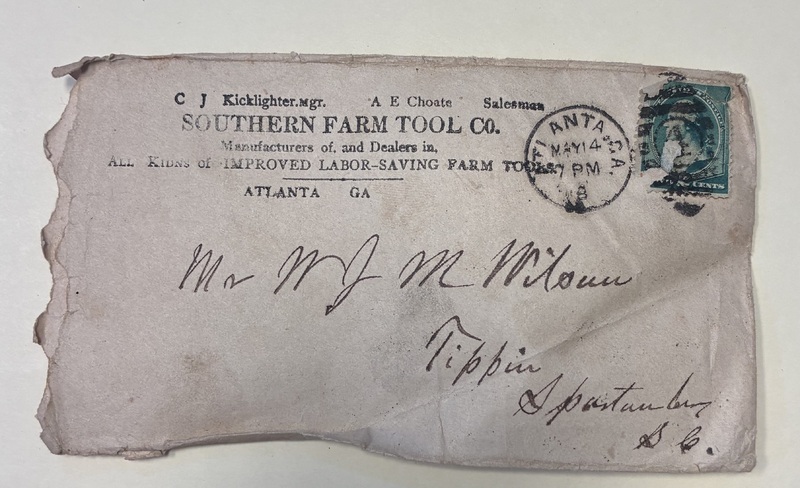 C J Kicklighter.Mgr. A E Choate Salesman
SOUTHERN FARM TOOL Co.
Manufacturers of, and Dealers in,
ALL KIDNS of IMPROVED LABOR-SAVING FARM TOOLS
ATLANTA GA
ATLANTA, GA.
MAY 14
7 PM
Mr W J M Wilson
Tippin
Spartanburg
S C.
CENTS